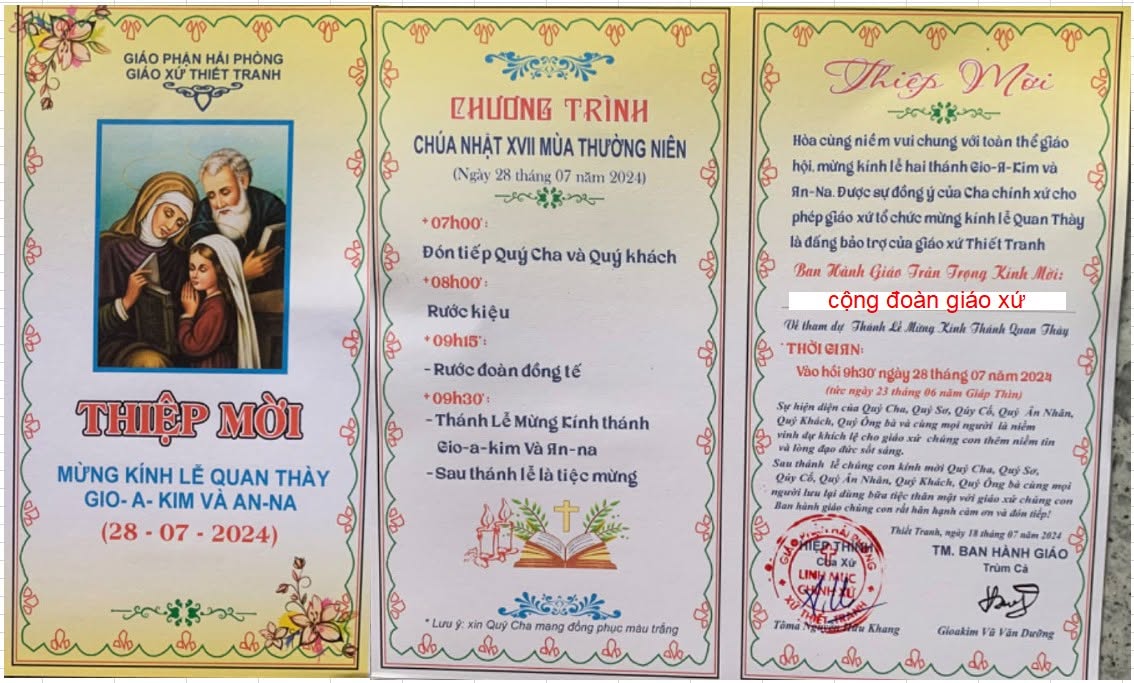 GIÁO PHẬN HẢI PHÒNG
GIÁO XỨ THIẾT TRANH
THIỆP MỜI
MỪNG KÍNH LỄ QUAN THÀY
GIO- A- KIM VÀ AN-NA
(28 - 07 - 2024)
CHƯƠNG TRÌNH
CHÚA NHẬT XVII MÙA THƯỜNG NIÊN
(Ngày 28 tháng 07 năm 2024)
+ 07h00':
Đón tiếp Quý Cha và Quý khách
+ 08h00':
Rước kiệu
+ 09h15':
- Rước đoàn đồng tế
+ 09h30'
- Thánh Lễ Mừng Kính thánh
Gio-a-kim Và An-na
- Sau thánh lễ là tiệc mừng
* Lưu ý: xin Quý Cha mang đồng phục màu trắng
Thiệp Mời
Hòa cùng niềm vui chung với toàn thể giáo
hội, mừng kính lễ hai thánh Gio-A-Kim và
An-Na. Được sự đồng ý của Cha chính xứ cho
phép giáo xứ tổ chức mừng kính lễ Quan Thày
là đấng bảo trợ của giáo xứ Thiết Tranh
Ban Hành Giáo Trân Trọng Kính Mời:
cộng đoàn giáo xứ
Về tham dự Thánh Lễ Mừng Kính Thánh Quan Thày
* THỜI GIAN:
Vào hồi 9h30' ngày 28 tháng 07 năm 2024
(tức ngày 23 tháng 06 năm Giáp Thìn)
Sự hiện diện của Quý Cha, Quý Sơ, Qúy Cố, Quý Ân Nhân,
Quý Khách, Quý Ông bà và cùng mọi người là niềm
vinh dự khích lệ cho giáo xứ chúng con thêm niềm tin
và lòng đạo đức sốt sáng.
Sau thánh lễ chúng con kính mời Quý Cha, Quý Sơ,
Qúy Cố, Quý Ân Nhân, Quý Khách, Quý Ông bà cùng mọi
người lưu lại dùng bữa tiệc thân mật với giáo xứ chúng con
Ban hành giáo chúng con rất hân hạnh cảm ơn và đón tiếp!
Thiết Tranh, ngày 18 tháng 07 năm 2024
HIỆP THÍNH
Cha Xứ
LINH MỤC
CHÍNH XỨ
XỨ THIẾT TRANH
Tôma Nguyễn Hữu Khang
TM. BAN HÀNH GIÁO
Trùm Cả
Gioakim Vũ Văn Dưỡng